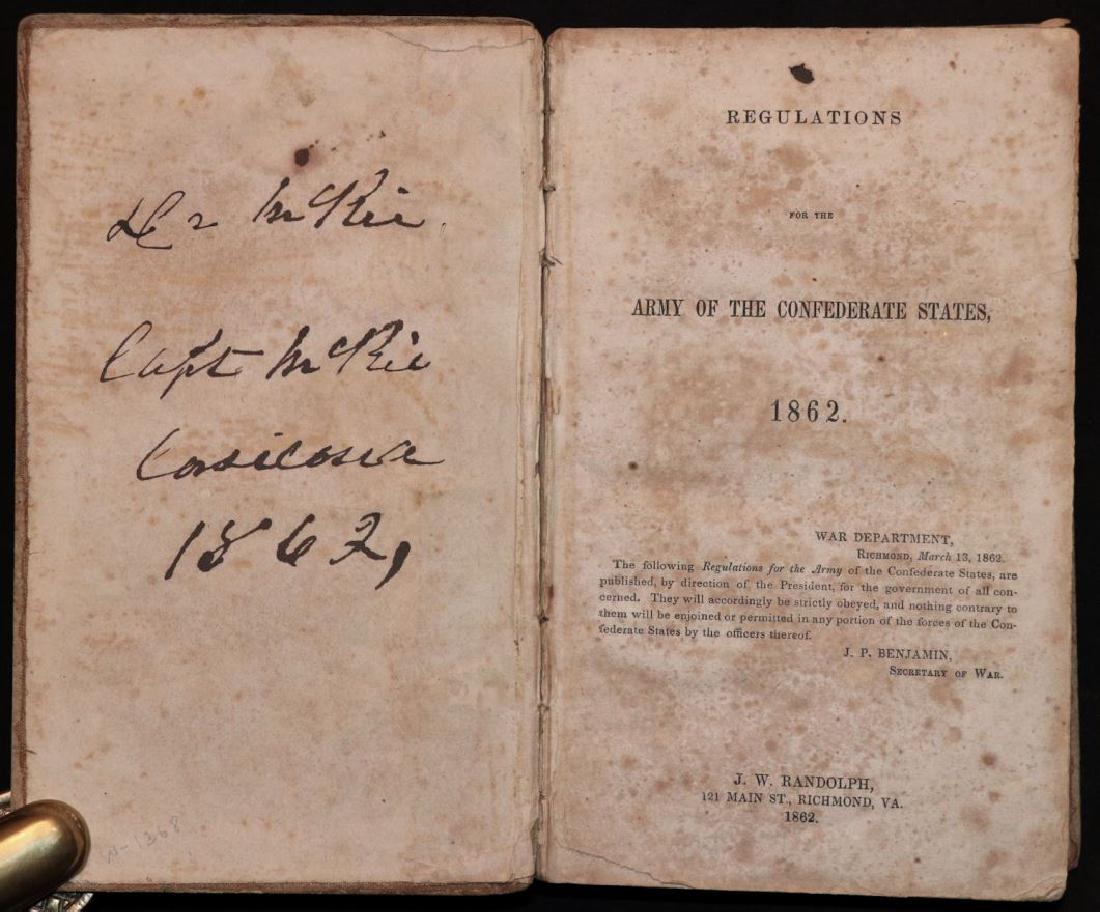 Dr McKie
Capt McKie
1862,
N-1368
REGULATIONS
FOR THE
ARMY OF THE CONFEDERATE STATES,
1862.
WAR DEPARTMENT,
RICHMOND, March 13, 1862.
The following Regulations for the Army of the Confederate States, are
published, by direction of the President, for the government of all con-
cerned. They will accordingly be strictly obeyed, and nothing contrary to
them will be enjoined or permitted in any portion of the forces of the Con-
federate States by the officers thereof.
J. P. BENJAMIN,
SECRETARY OF WAR.
J. W. RANDOLPH,
121 MAIN ST., RICHMOND, VA.
1862.